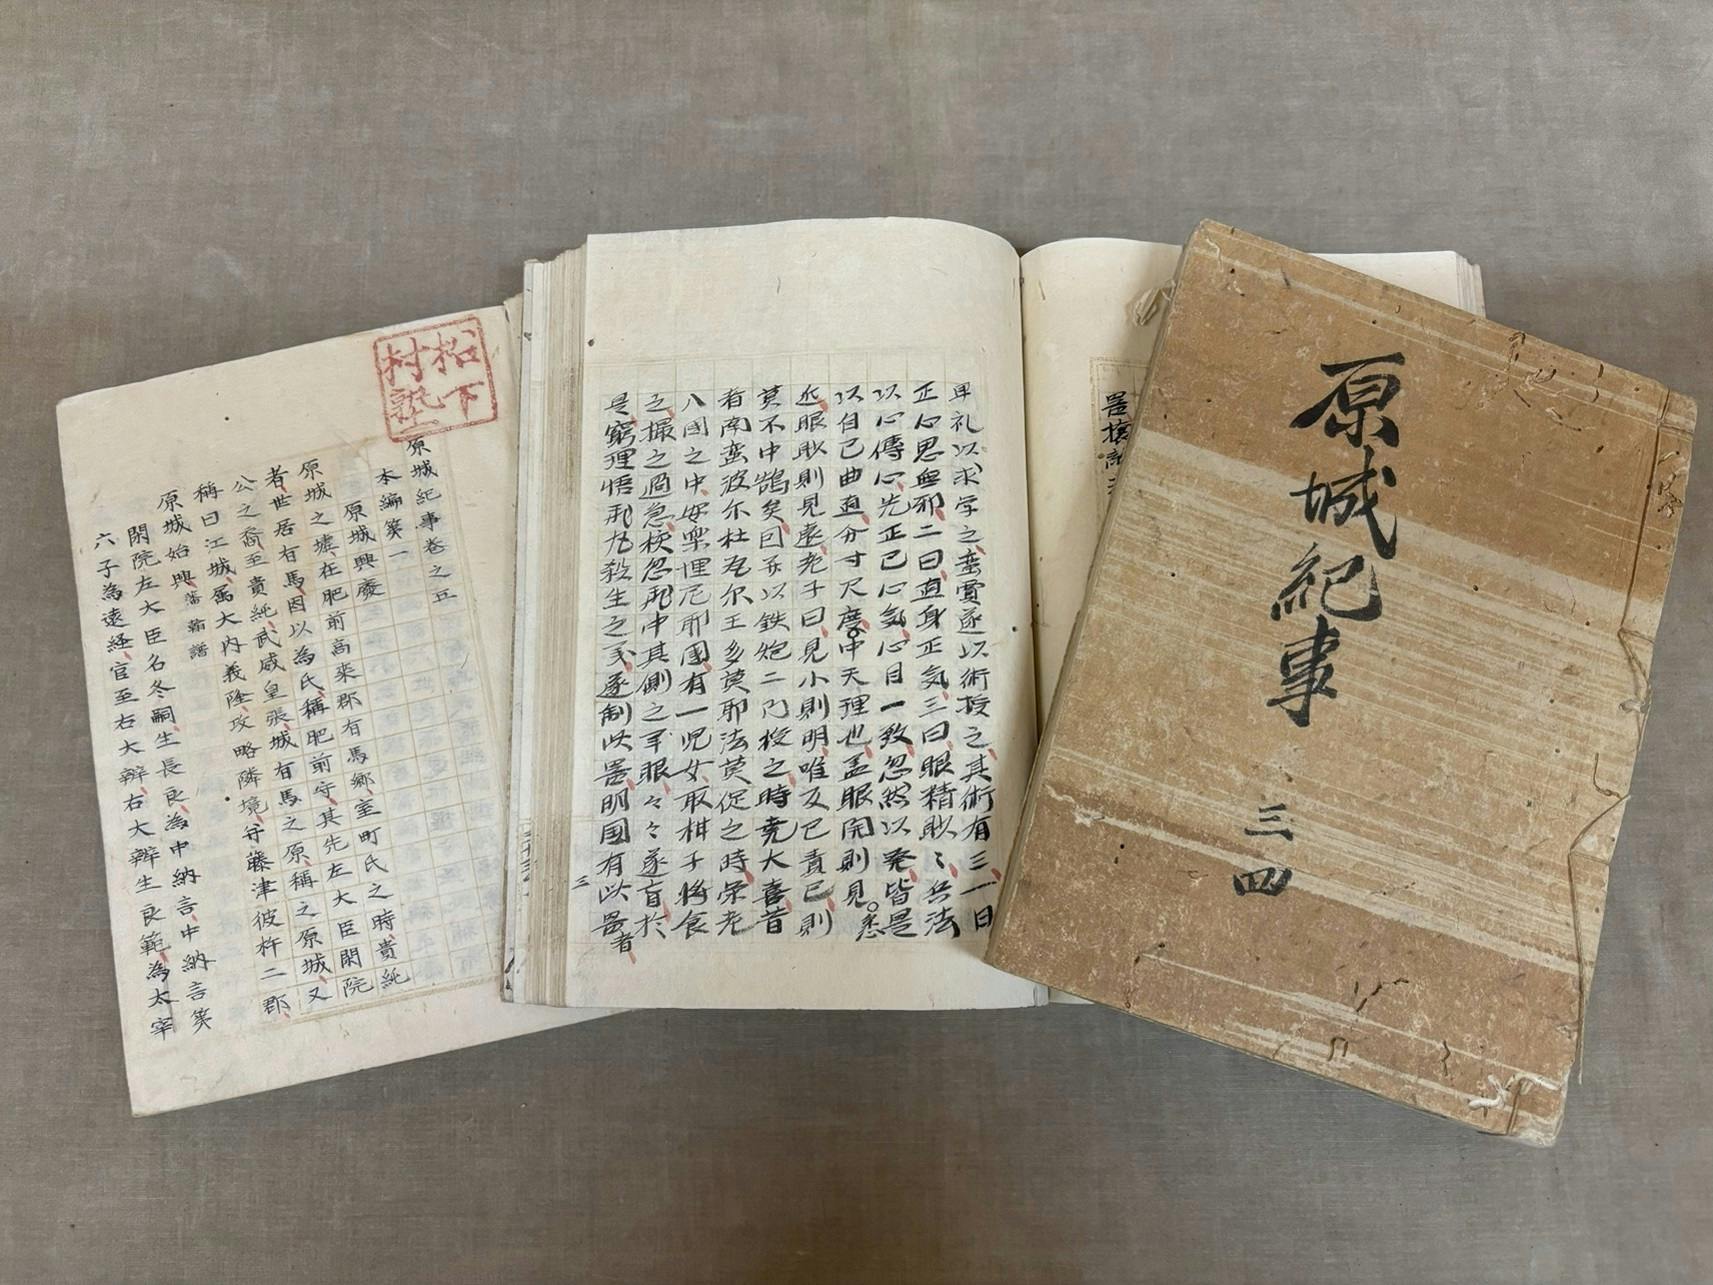 原城紀事
三四
卑礼以求学之蛮賓遂以術授之其術有三一曰
正心思無邪二曰直身正気三曰眼精眇々兵法
以心傳心先正己心気心目一致忽然以発皆是
以自己曲直分寸尺度中天理也孟眼開則見悉
近眼眇則見遠老子曰見小則明唯反己責己則
莫不中鵠矣回永以鉄炮二門授之時尭大喜昔
者南蛮波尔杜瓦尔王多莫耶法莫促之時栄老
八國之中安樂埋尼耶國有一児女取柑子将食
之撮之過急
是窮理悟
殺生之
遂制此畧明國有此畧者
三
松下
村塾
原城紀事巻之五
本編第一
原城興廢
原城之墟在肥前高来郡有馬郷室町氏之時貴純
者世居有馬因以為氏稱肥前守其先左大臣閑院
公之裔至貴純武威皇張城有馬之原稱之原城又
稱曰江城属大内義隆攻略隣境守藤津彼杵二郡
原城始興藩翰譜
閑院左大臣名冬嗣生長良為中納言中納言第
六子為遠経官至右大辨右大辨生良範為太宰